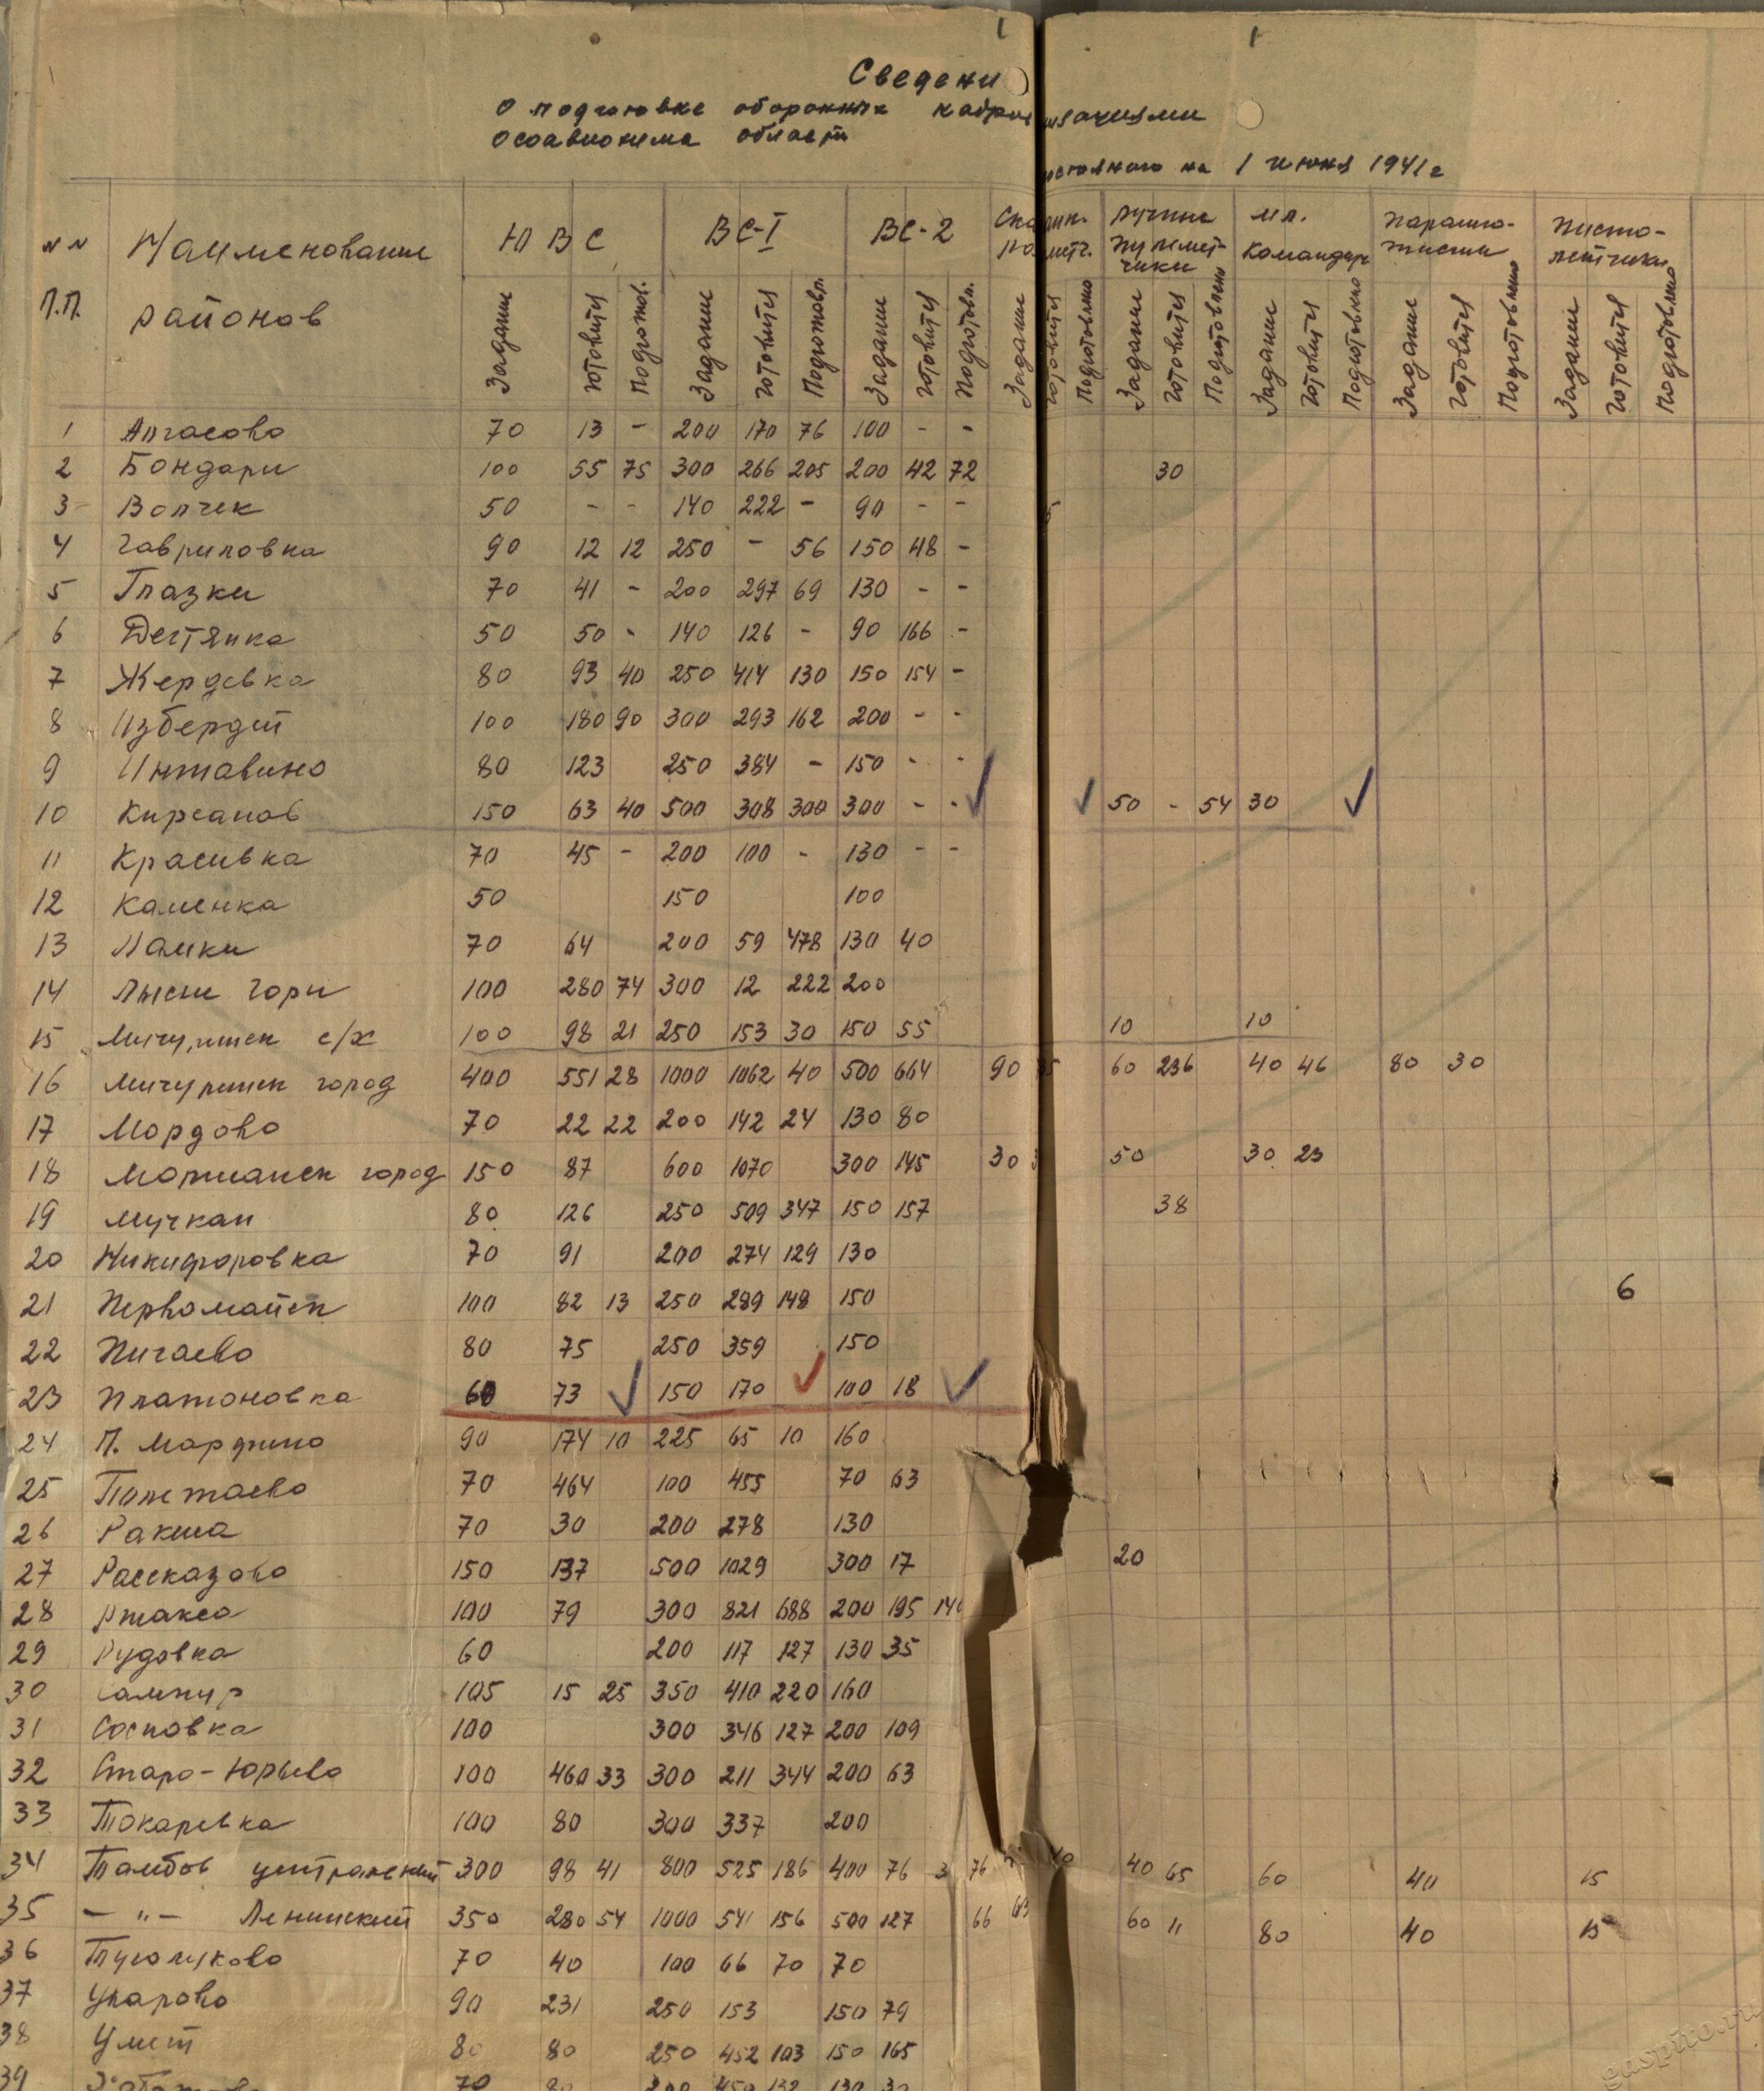 1 1
Сведени
О подготовке оборонных кадров изациями
Осоавиохима области
на 1 июня 1941 г
N N П.П. Наименование районов Ю В С ВС-I ВС-2 ручные пулемет-чики мл. командир парашю-тисты писто-летчики
Задание готовится Подготов. Задание готовится Подготовл. Задание готовится Подготовл. Задание готовится Подготовлено Задание готовится Подготовлено Задание готовится Подготовлено Задание готовится Подготовлено Задание готовится Подготовлено
1 Алгасово 70 13 - 200 170 76 100 - -
2 Бондари 100 55 75 300 266 205 200 42 72 30
3 Волчек 50 - - 140 222 - 90 - -
4 Гавриловка 90 12 12 250 - 56 150 48 -
5 Глазки 70 41 - 200 297 69 130 - -
6 Дегтянка 50 50 - 140 126 - 90 166 -
7 Жердевка 80 93 40 250 414 130 150 154 -
8 Избердей 100 180 90 300 293 162 200 - -
9 Инжавино 80 123 250 384 - 150 - -
10 Кирсанов 150 63 40 500 308 300 300 - - 50 - 54 30
11 Красивка 70 45 - 200 100 - 130 - -
12 Каменка 50 150 100
13 Ламки 70 64 200 59 478 130 40
14 Лысые Горы 100 280 74 300 12 222 200
15 Мичуринск с/х 100 98 21 250 153 30 150 55 10 10
16 Мичуринск город 400 551 28 1000 1062 40 500 664 90 60 236 40 46 80 30
17 Мордово 70 22 22 200 142 24 130 80
18 Моршанск город 150 87 600 1070 300 145 30 50 30 23
19 Мучкап 80 126 250 509 347 150 157 38
20 Никифоровка 70 91 200 274 129 130
21 Первомайск 100 82 13 250 289 148 150 6
22 Пичаево 80 75 250 359 150
23 Платоновка 60 73 150 170 100 18
24 П. Марфино 90 174 10 225 65 10 160
25 Полетаево 70 464 100 455 70 63
26 Ракша 70 30 200 278 130
27 Рассказово 150 137 500 1029 300 17 20
28 Ржакса 100 79 300 821 688 200 195 140
29 Рудовка 60 200 117 127 130 35
30 Сампур 105 15 25 350 410 220 160
31 Сосновка 100 300 346 127 200 109
32 Старо-Юрьево 100 460 33 300 211 344 200 63
33 Токаревка 100 80 300 337 200
34 Тамбов центральный 300 98 41 800 525 186 400 76 3 76 40 65 60 40 15
35 - " - Ленинский 350 280 54 1000 541 156 500 127 66 60 11 80 40 15
36 Туголуково 70 40 100 66 70 70
37 Уварово 90 231 250 153 150 79
38 Умет 80 80 250 452 103 150 165
39 70 80 200 450 132 130 30
gaspito.ru